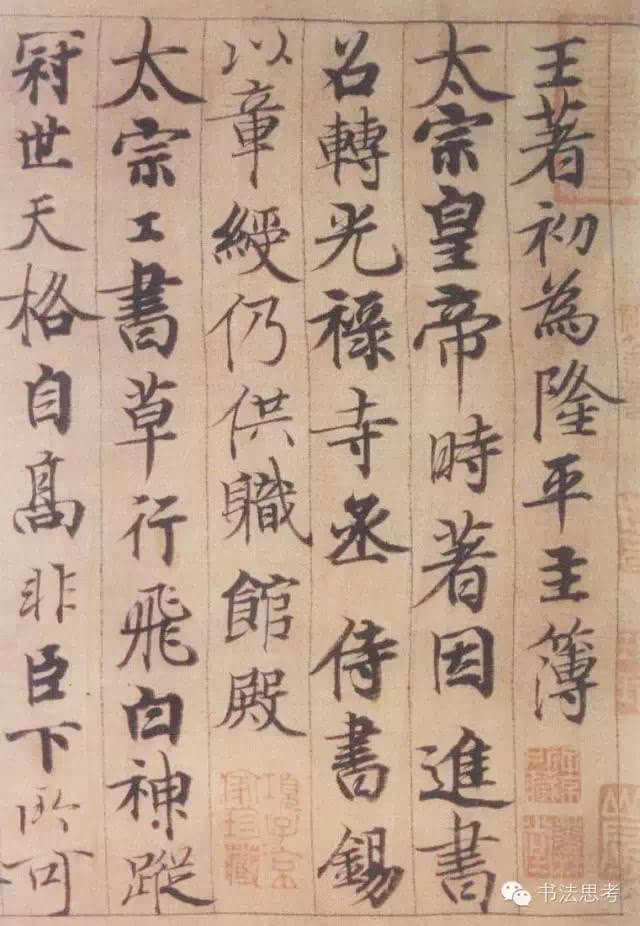 王著初為隆平主簿
太宗皇帝時著因進書
召轉光祿寺丞侍書錫
以章綬仍供職館殿
太宗工書草行飛白神蹤
冠世天格自高非臣下所可
項子京
家珍藏
书法思考